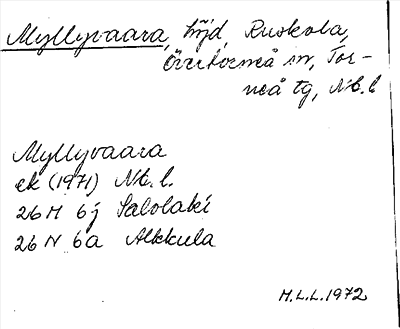 Myllyvaara, höjd, Ruskola,
Övertorneå sn, Tor-
neå tg, Nb.l
Myllyvaara
ek (1971) Nb.l.
26 M 6j Salolaki
26 N 6a Alkkula
M.L.L.1972